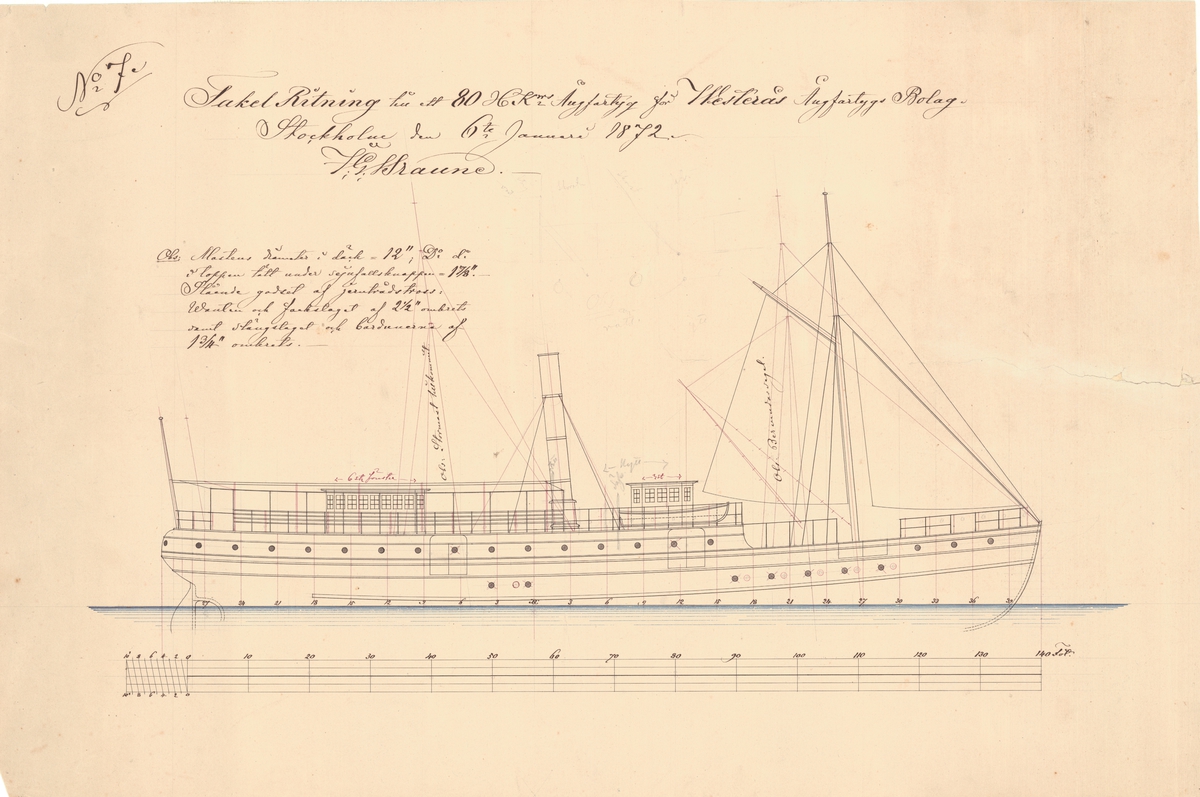 No 7.
Takel Ritning till ett 80 HKrs Ångfartyg för Westerås Ångfartygs Bolag.
Stockholm den 6te Januari 1872.
W. G. Braune.
Obs: Mastens diameter i däck = 12", Do d:o
i toppen tätt under
Stående godset af jerntrådstross:
Wanten och Fockstaget af 2½" omkrets
samt stångstaget och bardunerna af
1¾" omkrets.
Obs: Stormast tillkommit
Obs: Bermudasegel.
6 st. fönster
Hytt
27 24 21 18 15 12 9 6 3 3 6 9 12 15 18 21 24 27 30 33 36 39
10 8 6 4 2 0 10 20 30 40 50 60 70 80 90 100 110 120 130 140 Fot.
10 8 6 4 2 0